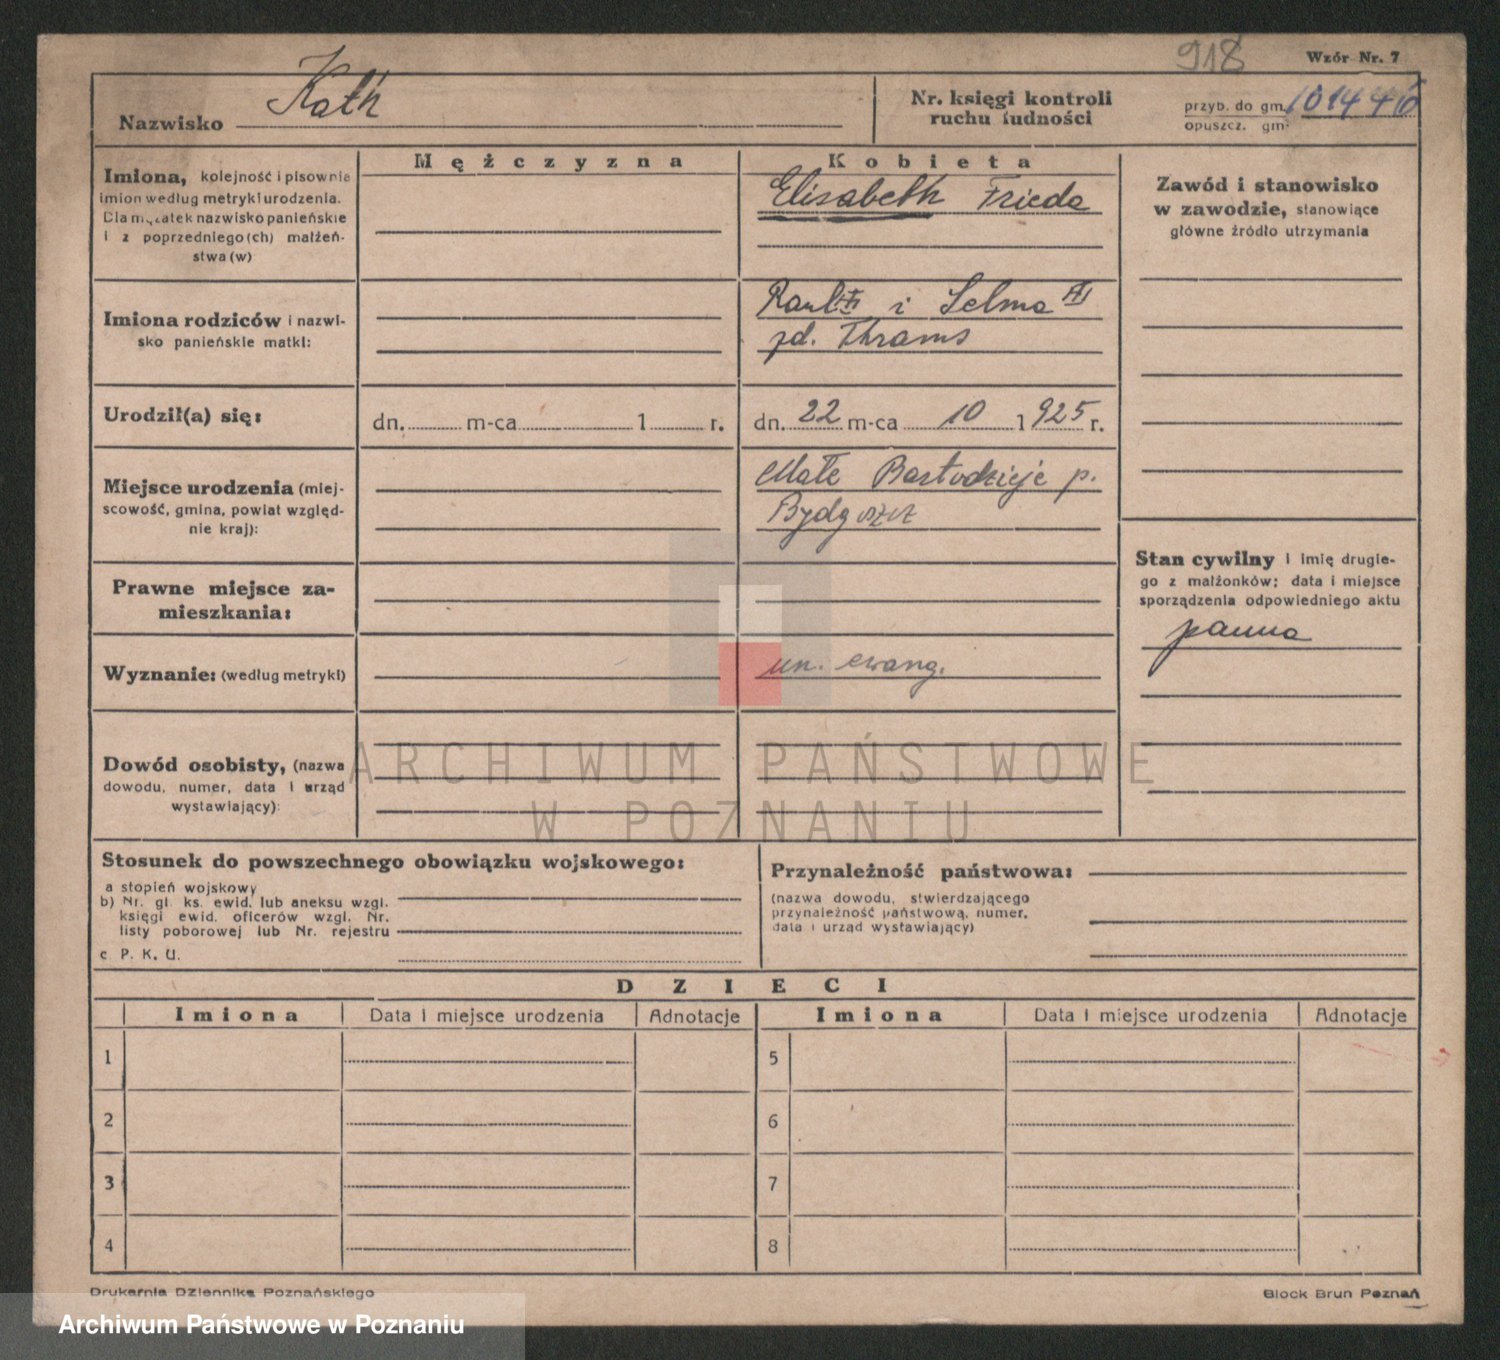 918
Wzór Nr. 7
Nazwisko Kath
Nr. księgi kontroli
ruchu ludności
przyb. do gm. 101446
opuszcz. gm:
Mężczyzna
Kobieta
Imiona, kolejność i pisownia
imion według metryki urodzenia.
Dla mężatek nazwisko panieńskie
i z poprzedniego(ch) małżeń-
stwa(w)
Elisabeth Frieda
Zawód i stanowisko
w zawodzie, stanowiące
główne źródło utrzymania
Imiona rodziców i nazwi-
sko panieńskie matki:
Paul i Selma
zd. Thrams
Urodził(a) się:
dn. m-ca 1 r.
dn. 22 m-ca 10 1925 r.
Miejsce urodzenia (miej-
scowość, gmina, powiat względ-
nie kraj):
Małe Bartodzieje p.
Bydgoszcz
Prawne miejsce za-
mieszkania:
Stan cywilny i imię drugie-
go z małżonków; data i miejsce
sporządzenia odpowiedniego aktu
panna
Wyznanie: (według metryki)
un. ewang.
Dowód osobisty, (nazwa
dowodu, numer, data i urząd
wystawiający):
ARCHIWUM PAŃSTWOWE
W POZNANIU
Stosunek do powszechnego obowiązku wojskowego:
a stopień wojskowy
b) Nr. gl. ks. ewid. lub aneksu wzgl.
księgi ewid. oficerów wzgl. Nr.
listy poborowej lub Nr. rejestru
c P. K. U.
Przynależność państwowa:
(nazwa dowodu, stwierdzającego
przynależność państwową, numer,
data i urząd wystawiający)
DZIECI
Imiona Data i miejsce urodzenia Adnotacje Imiona Data i miejsce urodzenia Adnotacje
1 5
2 6
3 7
4 8
Drukarnia Dziennika Poznańskiego
Block Brun Poznań
Archiwum Państwowe w Poznaniu